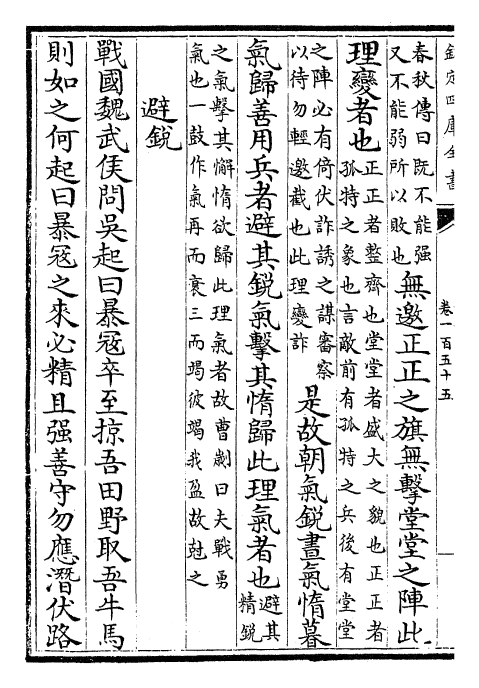 欽定四庫全書
卷一百五十五
春秋傳曰既不能强
又不能弱所以敗也
無邀正正之旗無擊堂堂之陣此
理變者也
正正者整齊也堂堂者盛大之貌也正正者
孤特之象也言敵前有孤特之兵後有堂堂
之陣必有倚伏詐誘之謀審察
以待勿輕邀截也此理變詐
是故朝氣鋭晝氣惰暮
氣歸善用兵者避其鋭氣擊其惰歸此理氣者也
避其
精鋭
之氣擊其懈惰欲歸此理氣者故曹劌曰夫戰勇
氣也一鼓作氣再而衰三而竭彼竭我盈故尅之
避鋭
戰國魏武侯問吳起曰暴冦卒至掠吾田野取吾牛馬
則如之何起曰暴冦之來必精且强善守勿應潛伏路